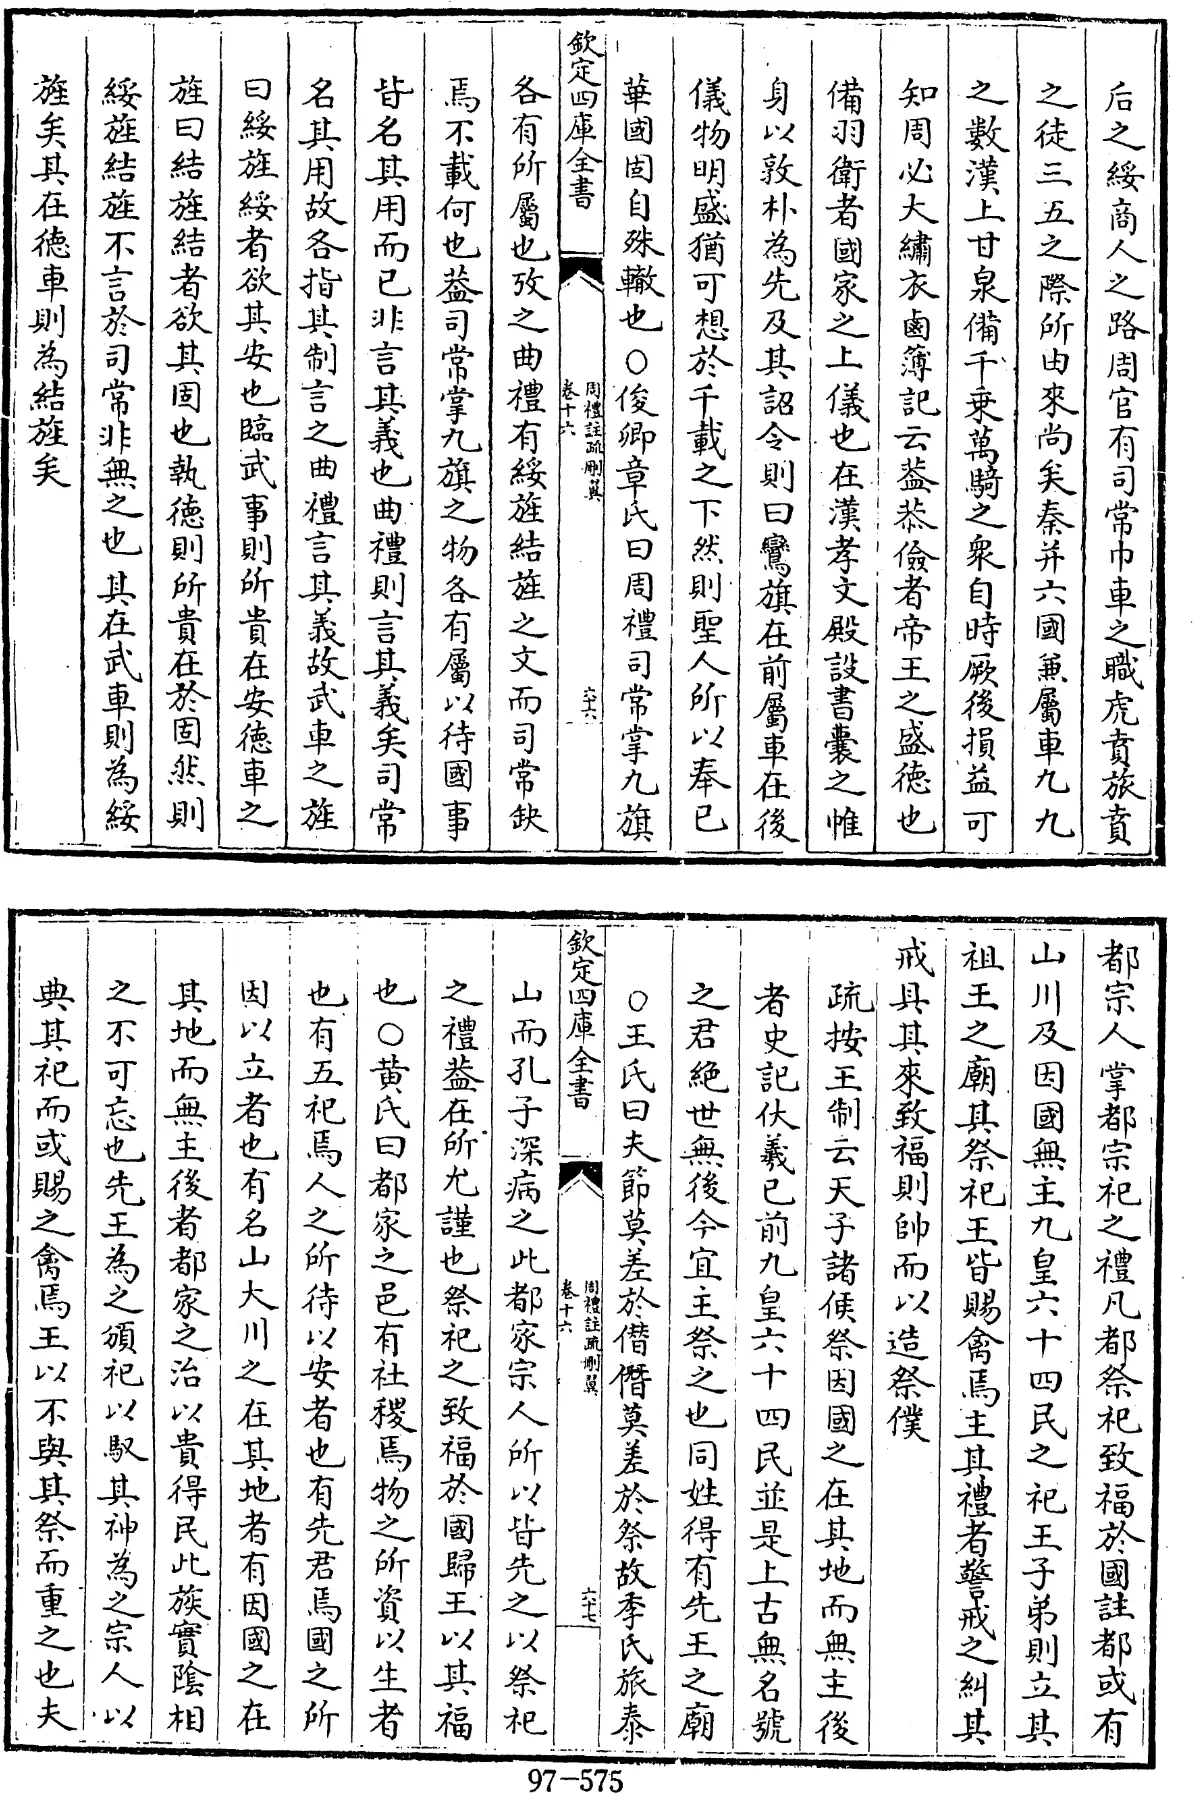 后之綏商人之路周官有司常巾車之職虎賁旅賁
之徒三五之際所由來尚矣秦并六國兼屬車九九
之數漢上甘泉備千乗萬騎之衆自時厥後損益可
知周必大繡衣鹵簿記云葢恭儉者帝王之盛徳也
備羽衛者國家之上儀也在漢孝文殿設書囊之帷
身以敦朴為先及其詔令則曰鸞旗在前屬車在後
儀物明盛猶可想於千載之下然則聖人所以奉已
華國固自殊轍也○俊卿章氏曰周禮司常掌九旗
欽定四庫全書
周禮註疏刪翼
卷十六
六十六
各有所屬也攷之曲禮有綏旌結旌之文而司常缺
焉不載何也葢司常掌九旗之物各有屬以待國事
皆名其用而已非言其義也曲禮則言其義矣司常
名其用故各指其制言之曲禮言其義故武車之旌
曰綏旌綏者欲其安也臨武事則所貴在安徳車之
旌曰結旌結者欲其固也執徳則所貴在於固然則
綏旌結旌不言於司常非無之也其在武車則為綏
旌矣其在徳車則為結旌矣
都宗人掌都宗祀之禮凡都祭祀致福於國註都或有
山川及因國無主九皇六十四民之祀王子弟則立其
祖王之廟其祭祀王皆賜禽焉主其禮者警戒之糾其
戒具其來致福則帥而以造祭僕
疏按王制云天子諸侯祭因國之在其地而無主後
者史記伏羲已前九皇六十四民並是上古無名號
之君絶世無後今宜主祭之也同姓得有先王之廟
○王氏曰夫節莫差於僭僭莫差於祭故季氏旅泰
欽定四庫全書
周禮註疏刪翼
卷十六
六十七
山而孔子深病之此都家宗人所以皆先之以祭祀
之禮葢在所尤謹也祭祀之致福於國歸王以其福
也○黄氏曰都家之邑有社稷焉物之所資以生者
也有五祀焉人之所待以安者也有先君焉國之所
因以立者也有名山大川之在其地者有因國之在
其地而無主後者都家之治以貴得民此族實隂相
之不可忘也先王為之頒祀以馭其神為之宗人以
典其祀而或賜之禽焉王以不與其祭而重之也夫
97-575